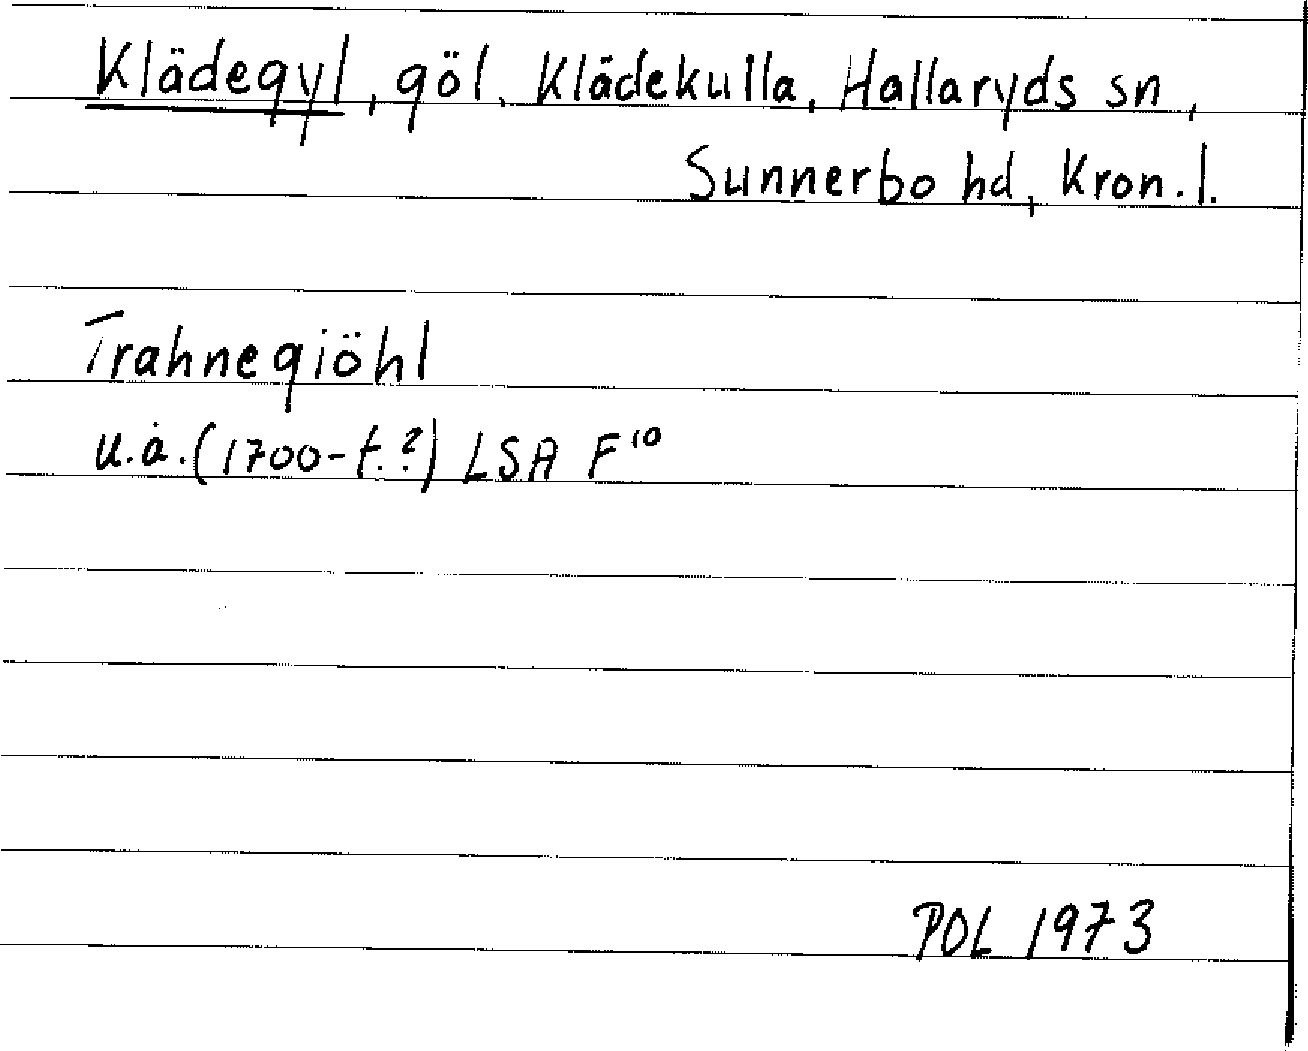 Klädegyl, göl, Klädekulla, Hallaryds sn,
Sunnerbo hd, Kron.l.
Trahnegiöhl
u.å.(1700-t.?) LSA F¹⁰
POL 1973